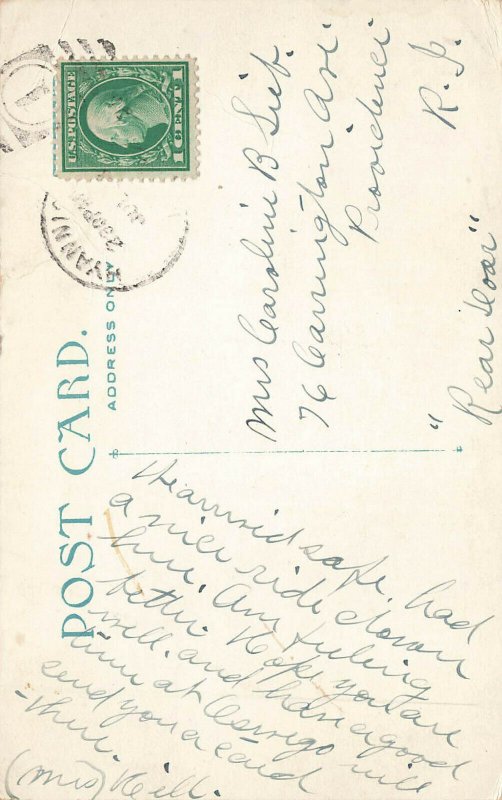 POST CARD.
ADDRESS ONLY
U.S. POSTAGE
1 CENT 1
HYANNIS
230PM
We arrived safe, had
a nice ride down
here. Am feeling
better. Hope you are
well, and have a good
time at will
send you a card
there.
(Mrs) Keill.
Mrs Caroline B
76 Carrington Ave
Providence
R. I.
"Rear Door"